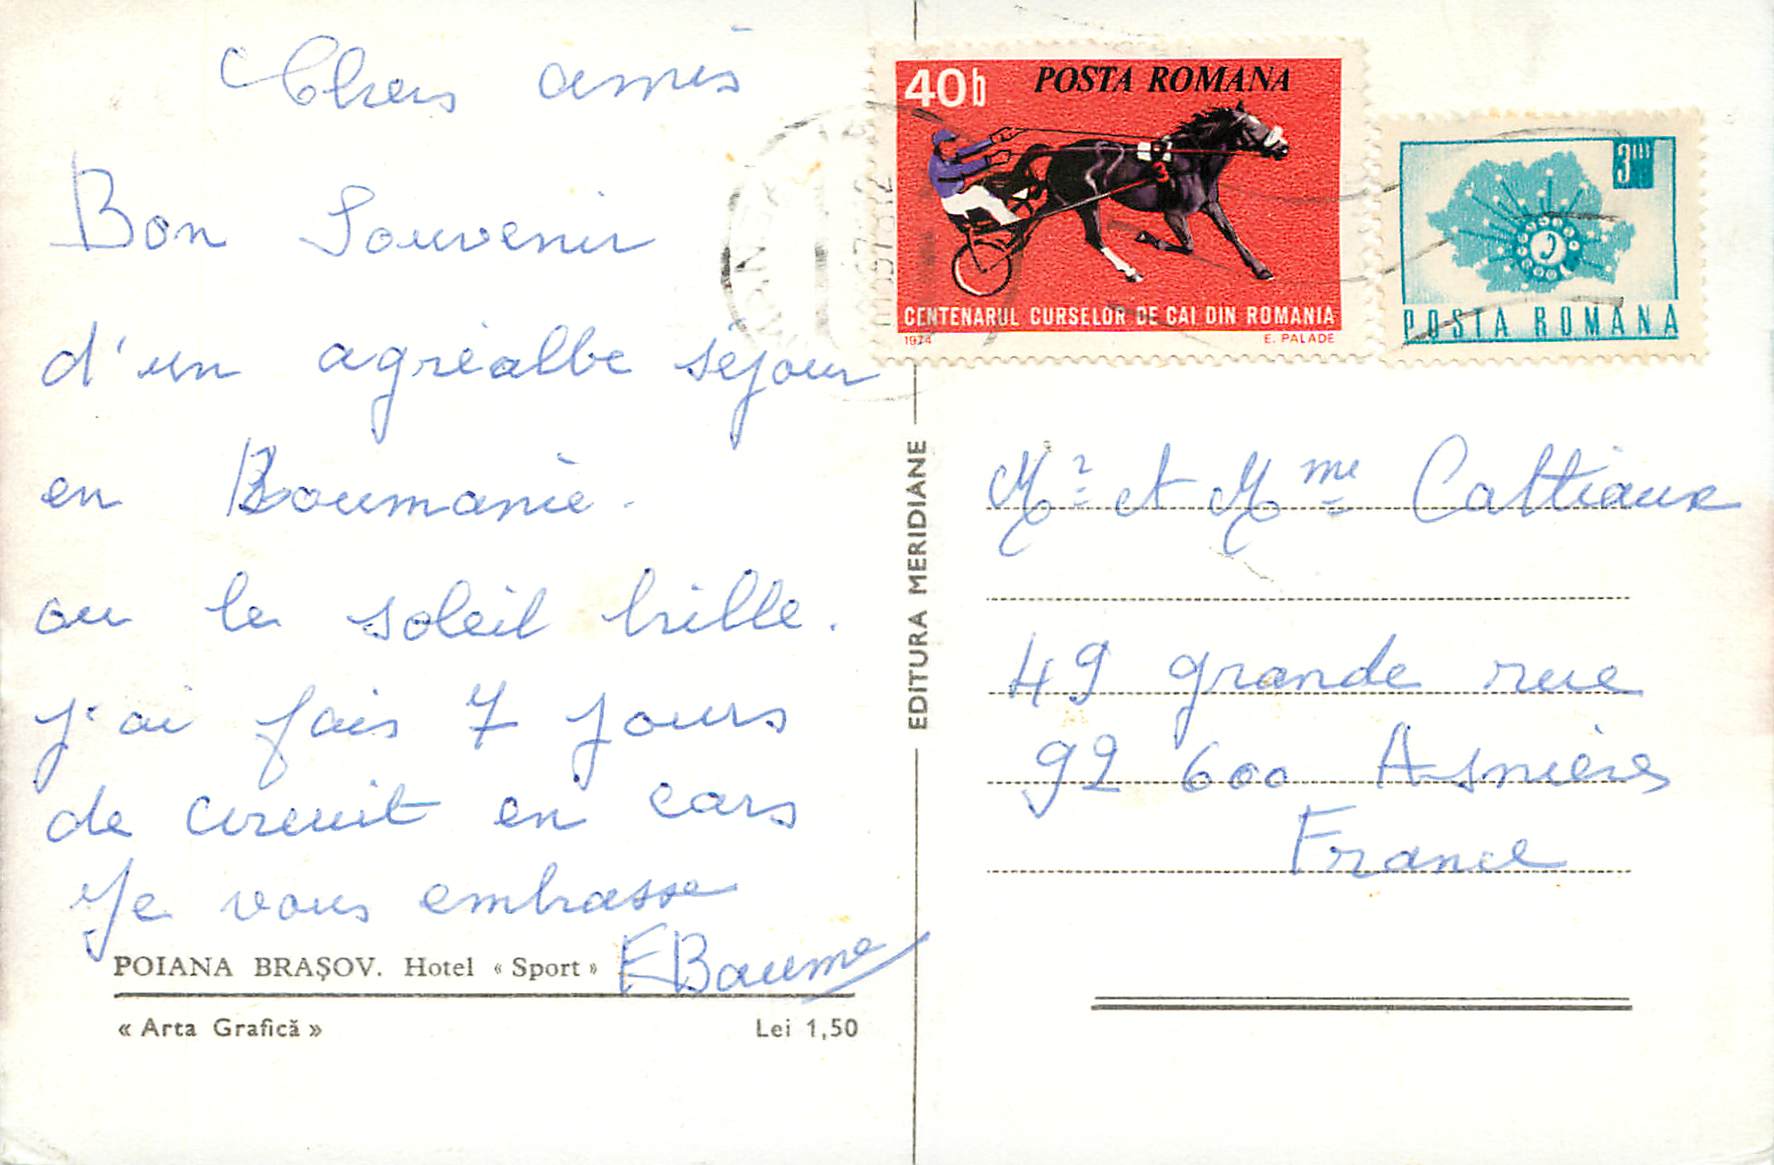 Chers amis
Bon Souvenir
d'un agréalbe séjour
en Roumanie.
ou le soleil brille.
j'ai fais 7 jours
de circuit en cars
Je vous embrasse
EBaume
POIANA BRAŞOV. Hotel « Sport »
« Arta Grafică »
Lei 1,50
EDITURA MERIDIANE
40b
POSTA ROMANA
CENTENARUL CURSELOR DE CAI DIN ROMANIA
1974
E. PALADE
3 lei
POSTA ROMÂNA
Mr et Mme Cattiaux
49 grande rue
92 600 Asnières
France